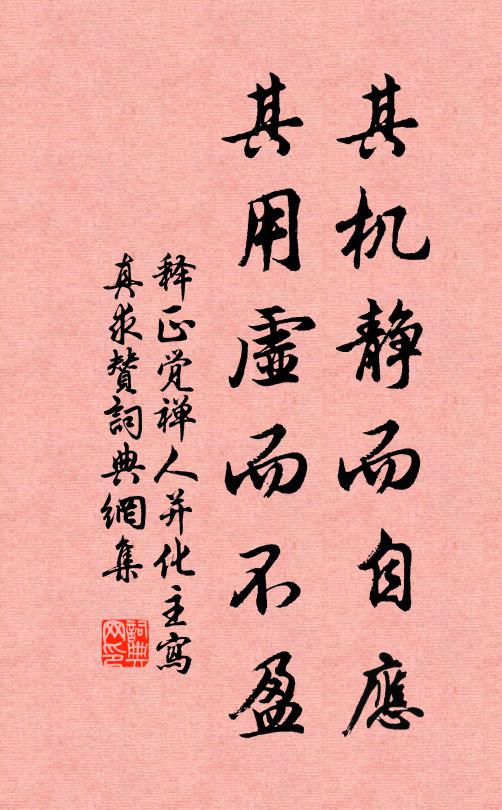 其机静而自應
其用虛而不盈
释正觉禅人并化主寫
真求赞詞典網集
詞典
网印